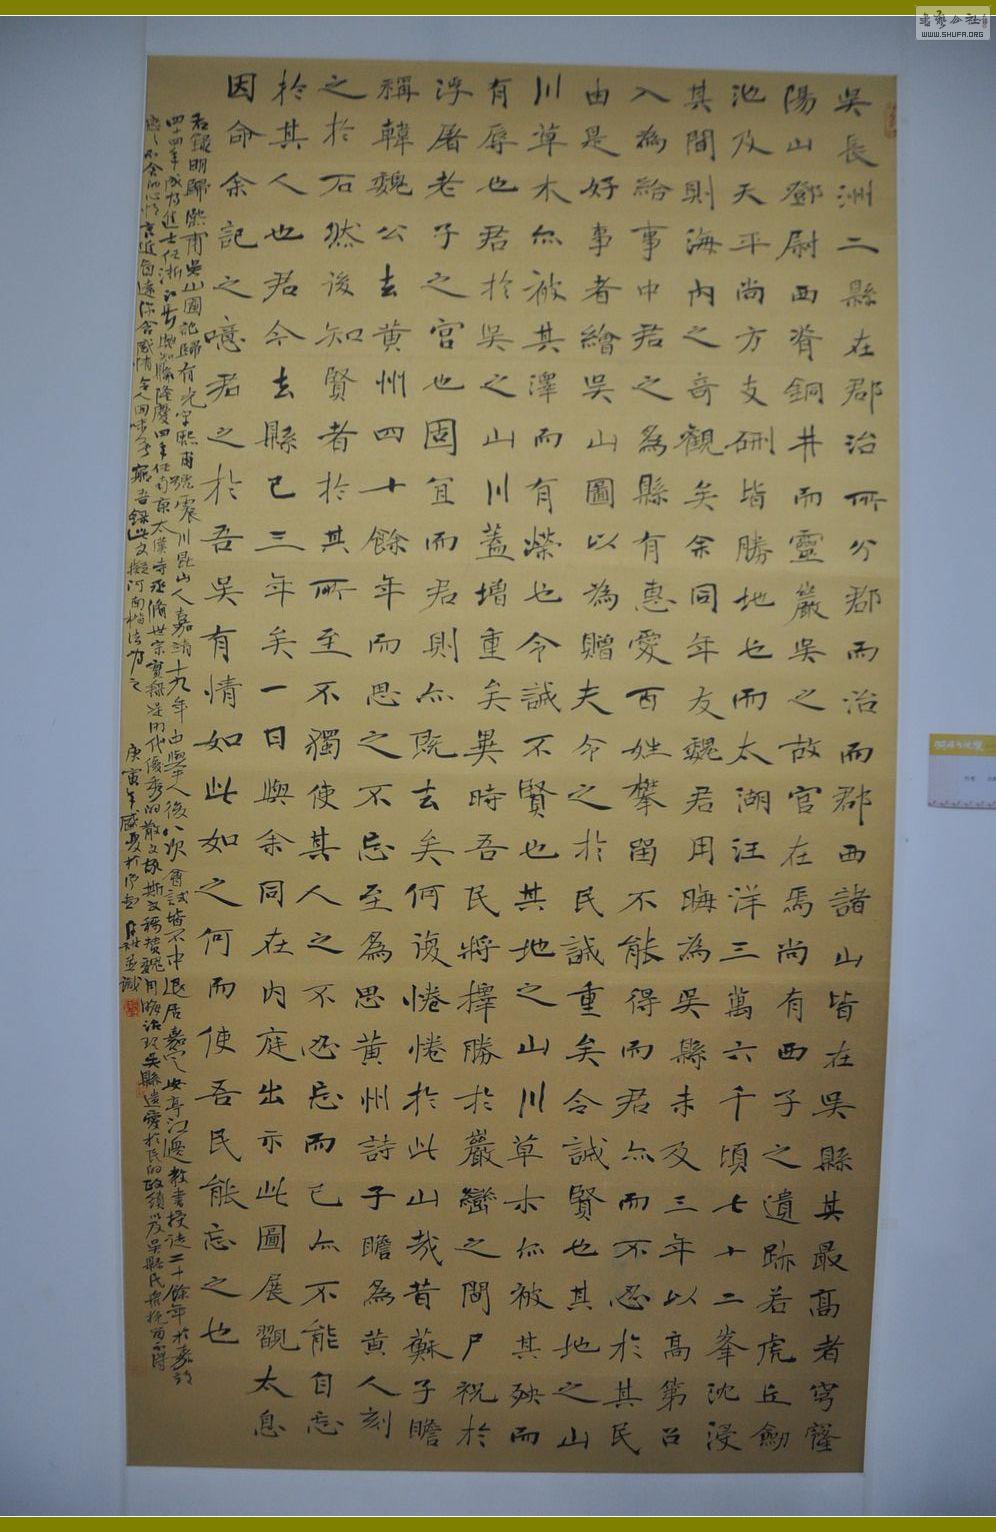 吳長洲二縣在郡治所分郡而治而郡西諸山皆在吳縣其最高者穹窿
陽山鄧尉西脊銅井而靈巖吳之故宮在焉尚有西子之遺跡若虎丘劒
池及天平尚方支硎皆勝地也而太湖汪洋三萬六千頃七十二峯沈浸
其間則海內之奇觀矣余同年友魏君用晦為吳縣未及三年以高第召
入為給事中君之為縣有惠愛百姓攀留不能得而君亦而不忍於其民
由是好事者繪吳山圖以為贈夫令之於民誠重矣令誠賢也其地之山
川草木亦被其澤而有榮也令誠不賢也其地之山川草木亦被其殃而
有辱也君於吳之山川蓋增重矣異時吾民將擇勝於巖巒之間尸祝於
浮屠老子之宮也固宜而君則亦既去矣何復惓惓於此山哉昔蘇子瞻
稱韓魏公去黃州四十餘年而思之不忘至為思黃州詩子瞻為黃人刻
之於石然後知賢者於其所至不獨使其人之不忍忘而已亦不能自忘
於其人也君今去縣已三年矣一日與余同在內庭出示此圖展翫太息
因命余記之噫君之於吾吳有情如此如之何而使吾民能忘之也
右錄明歸熙甫吳山圖記歸有光字熙甫號震川崑山人嘉靖十九年中舉人後八次會試皆不中退居嘉定安亭江邊教書授徒二十餘年於嘉靖
四十四年成為進士任浙江長興知縣隆慶四年任南京太僕寺丞脩世宗實錄是明代優秀的散文家斯文稱贊魏用晦治理吳縣遺愛於民的政績以及吳縣民衆挽留
不舍的心情言近旨遠飽含感情令人回味無窮吾錄此文擬河南楷法為之
庚寅年盛夏於
WWW.SHUFA.ORG